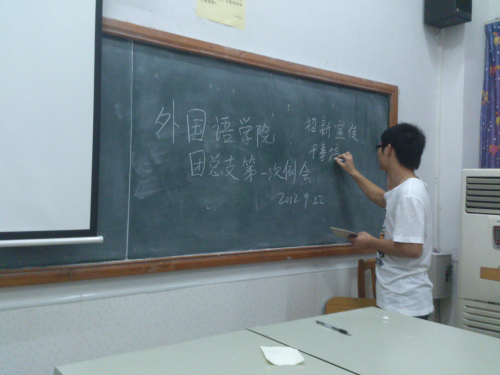 外国语学院
团总支第一次例会
2012.9.22
招新宣传
干事培